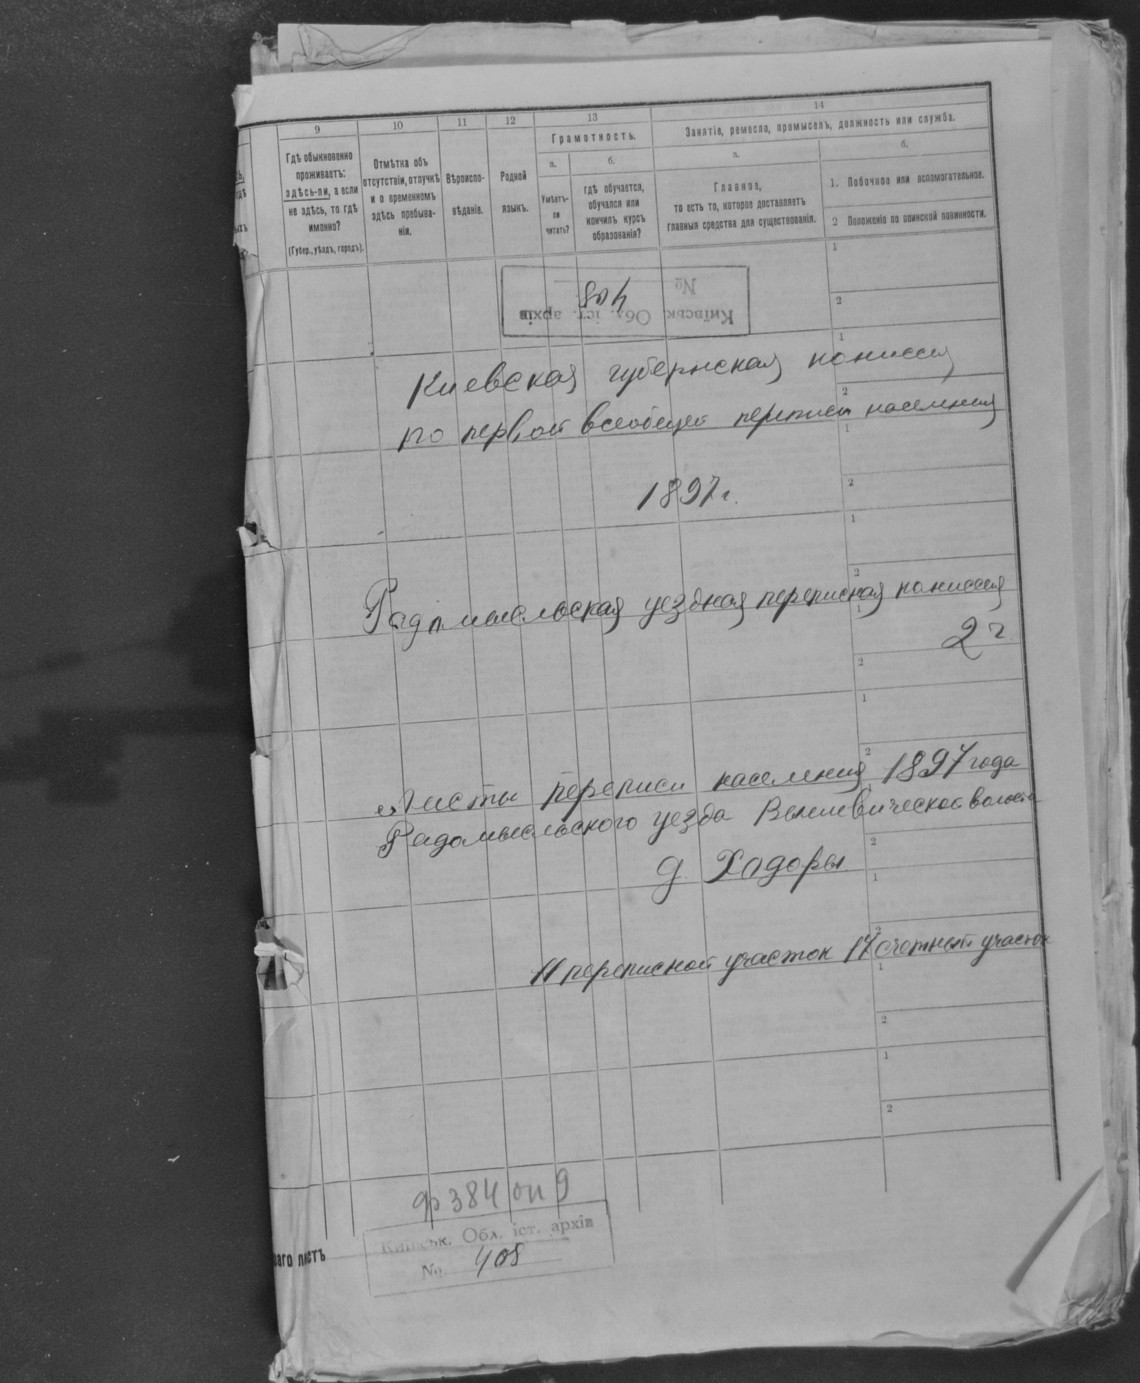 9 10 11 12 13 14
Гдѣ обыкновенно проживаетъ: здѣсь-ли, а если не здѣсь, то гдѣ именно?
(Губер., уѣздъ, городъ).
Отмѣтка объ отсутствіи, отлучкѣ и о временномъ здѣсь пребываніи.
Вѣроиспо-вѣданіе.
Родной языкъ.
Грамотность.
а.
Умѣетъ-ли читать?
б.
гдѣ обучается, обучался или кончилъ курсъ образованія?
Занятіе, ремесло, промыселъ, должность или служба.
а.
Главное,
то есть то, которое доставляетъ главныя средства для существованія.
б.
1. Побочное или вспомогательное.
2 Положеніе по воинской повинности.
№ 804
Київськ. Обл. іст. архів
Киевская губернская комиссия
по первой всеобщей переписи населения
1897 г.
Радомысльская уездная переписная комиссия
2 г.
Листы переписи населения 1897 года
Радомысльского уезда волости
д. Ходоры
11 переписной участок 17 счетный участок
ф 384 оп 9
Київськ. Обл. іст. архів
№ 408
ваго листъ